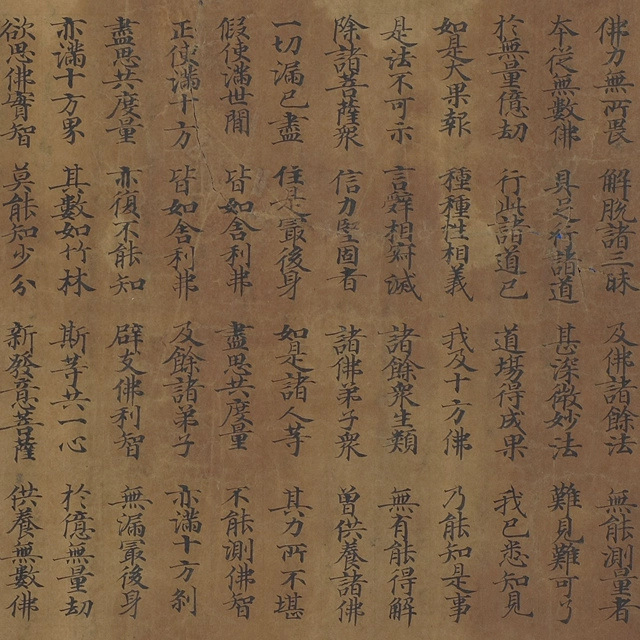 佛力無所畏 解脫諸三昧 及佛諸餘法 無能測量者
本從無數佛 具足行諸道 甚深微妙法 難見難可了
於無量億劫 行此諸道已 道場得成果 我已悉知見
如是大果報 種種性相義 我及十方佛 乃能知是事
是法不可示 言辭相寂滅 諸餘衆生類 無有能得解
除諸菩薩衆 信力堅固者 諸佛弟子衆 曾供養諸佛
一切漏已盡 住是最後身 如是諸人等 其力所不堪
假使滿世間 皆如舍利弗 盡思共度量 不能測佛智
正使滿十方 皆如舍利弗 及餘諸弟子 亦滿十方剎
盡思共度量 亦復不能知 辟支佛利智 無漏最後身
亦滿十方界 其數如竹林 斯等共一心 於億無量劫
欲思佛實智 莫能知少分 新發意菩薩 供養無數佛